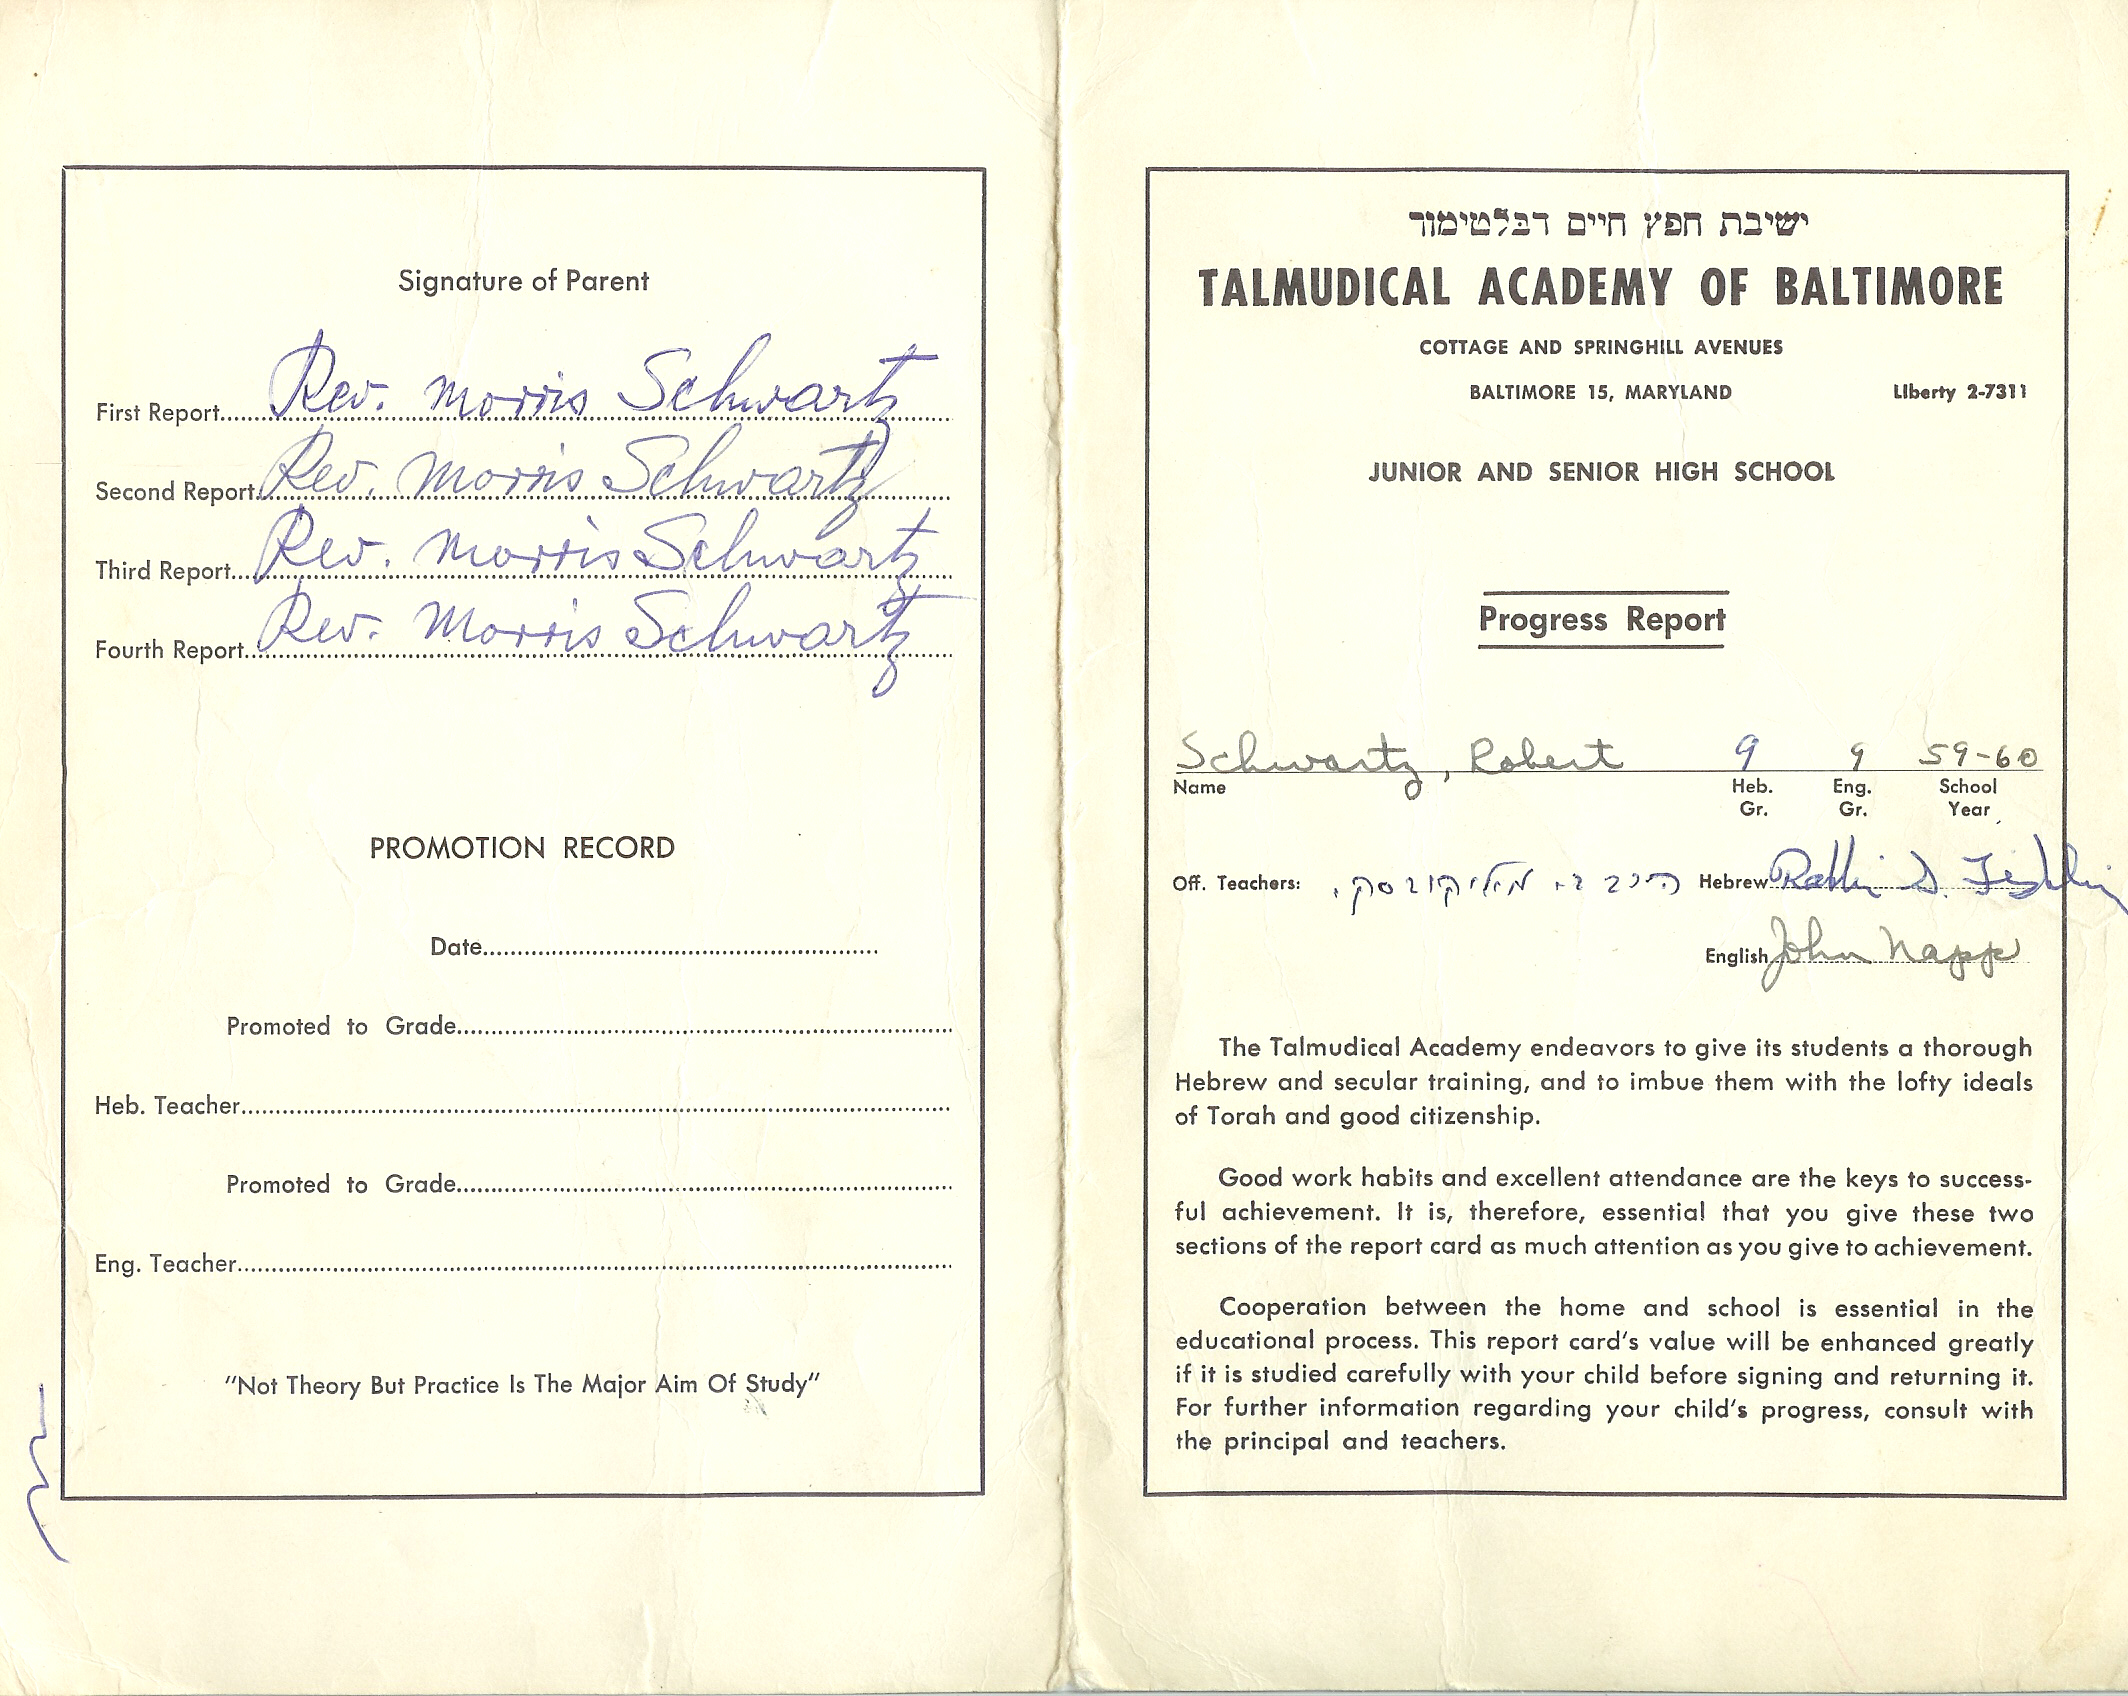 Signature of Parent
First Report Rev. Morris Schwartz
Second Report Rev. Morris Schwartz
Third Report Rev. Morris Schwartz
Fourth Report Rev. Morris Schwartz
PROMOTION RECORD
Date
Promoted to Grade
Heb. Teacher
Promoted to Grade
Eng. Teacher
"Not Theory But Practice Is The Major Aim Of Study"
ישיבת חפץ חיים דבלטימור
TALMUDICAL ACADEMY OF BALTIMORE
COTTAGE AND SPRINGHILL AVENUES
BALTIMORE 15, MARYLAND LIberty 2-7311
JUNIOR AND SENIOR HIGH SCHOOL
Progress Report
Schwartz, Robert 9 9 59-60
Name Heb. Eng. School
Gr. Gr. Year
Off. Teachers: הרב Hebrew Rabbi
English John Napp
The Talmudical Academy endeavors to give its students a thorough
Hebrew and secular training, and to imbue them with the lofty ideals
of Torah and good citizenship.
Good work habits and excellent attendance are the keys to success-
ful achievement. It is, therefore, essential that you give these two
sections of the report card as much attention as you give to achievement.
Cooperation between the home and school is essential in the
educational process. This report card's value will be enhanced greatly
if it is studied carefully with your child before signing and returning it.
For further information regarding your child's progress, consult with
the principal and teachers.